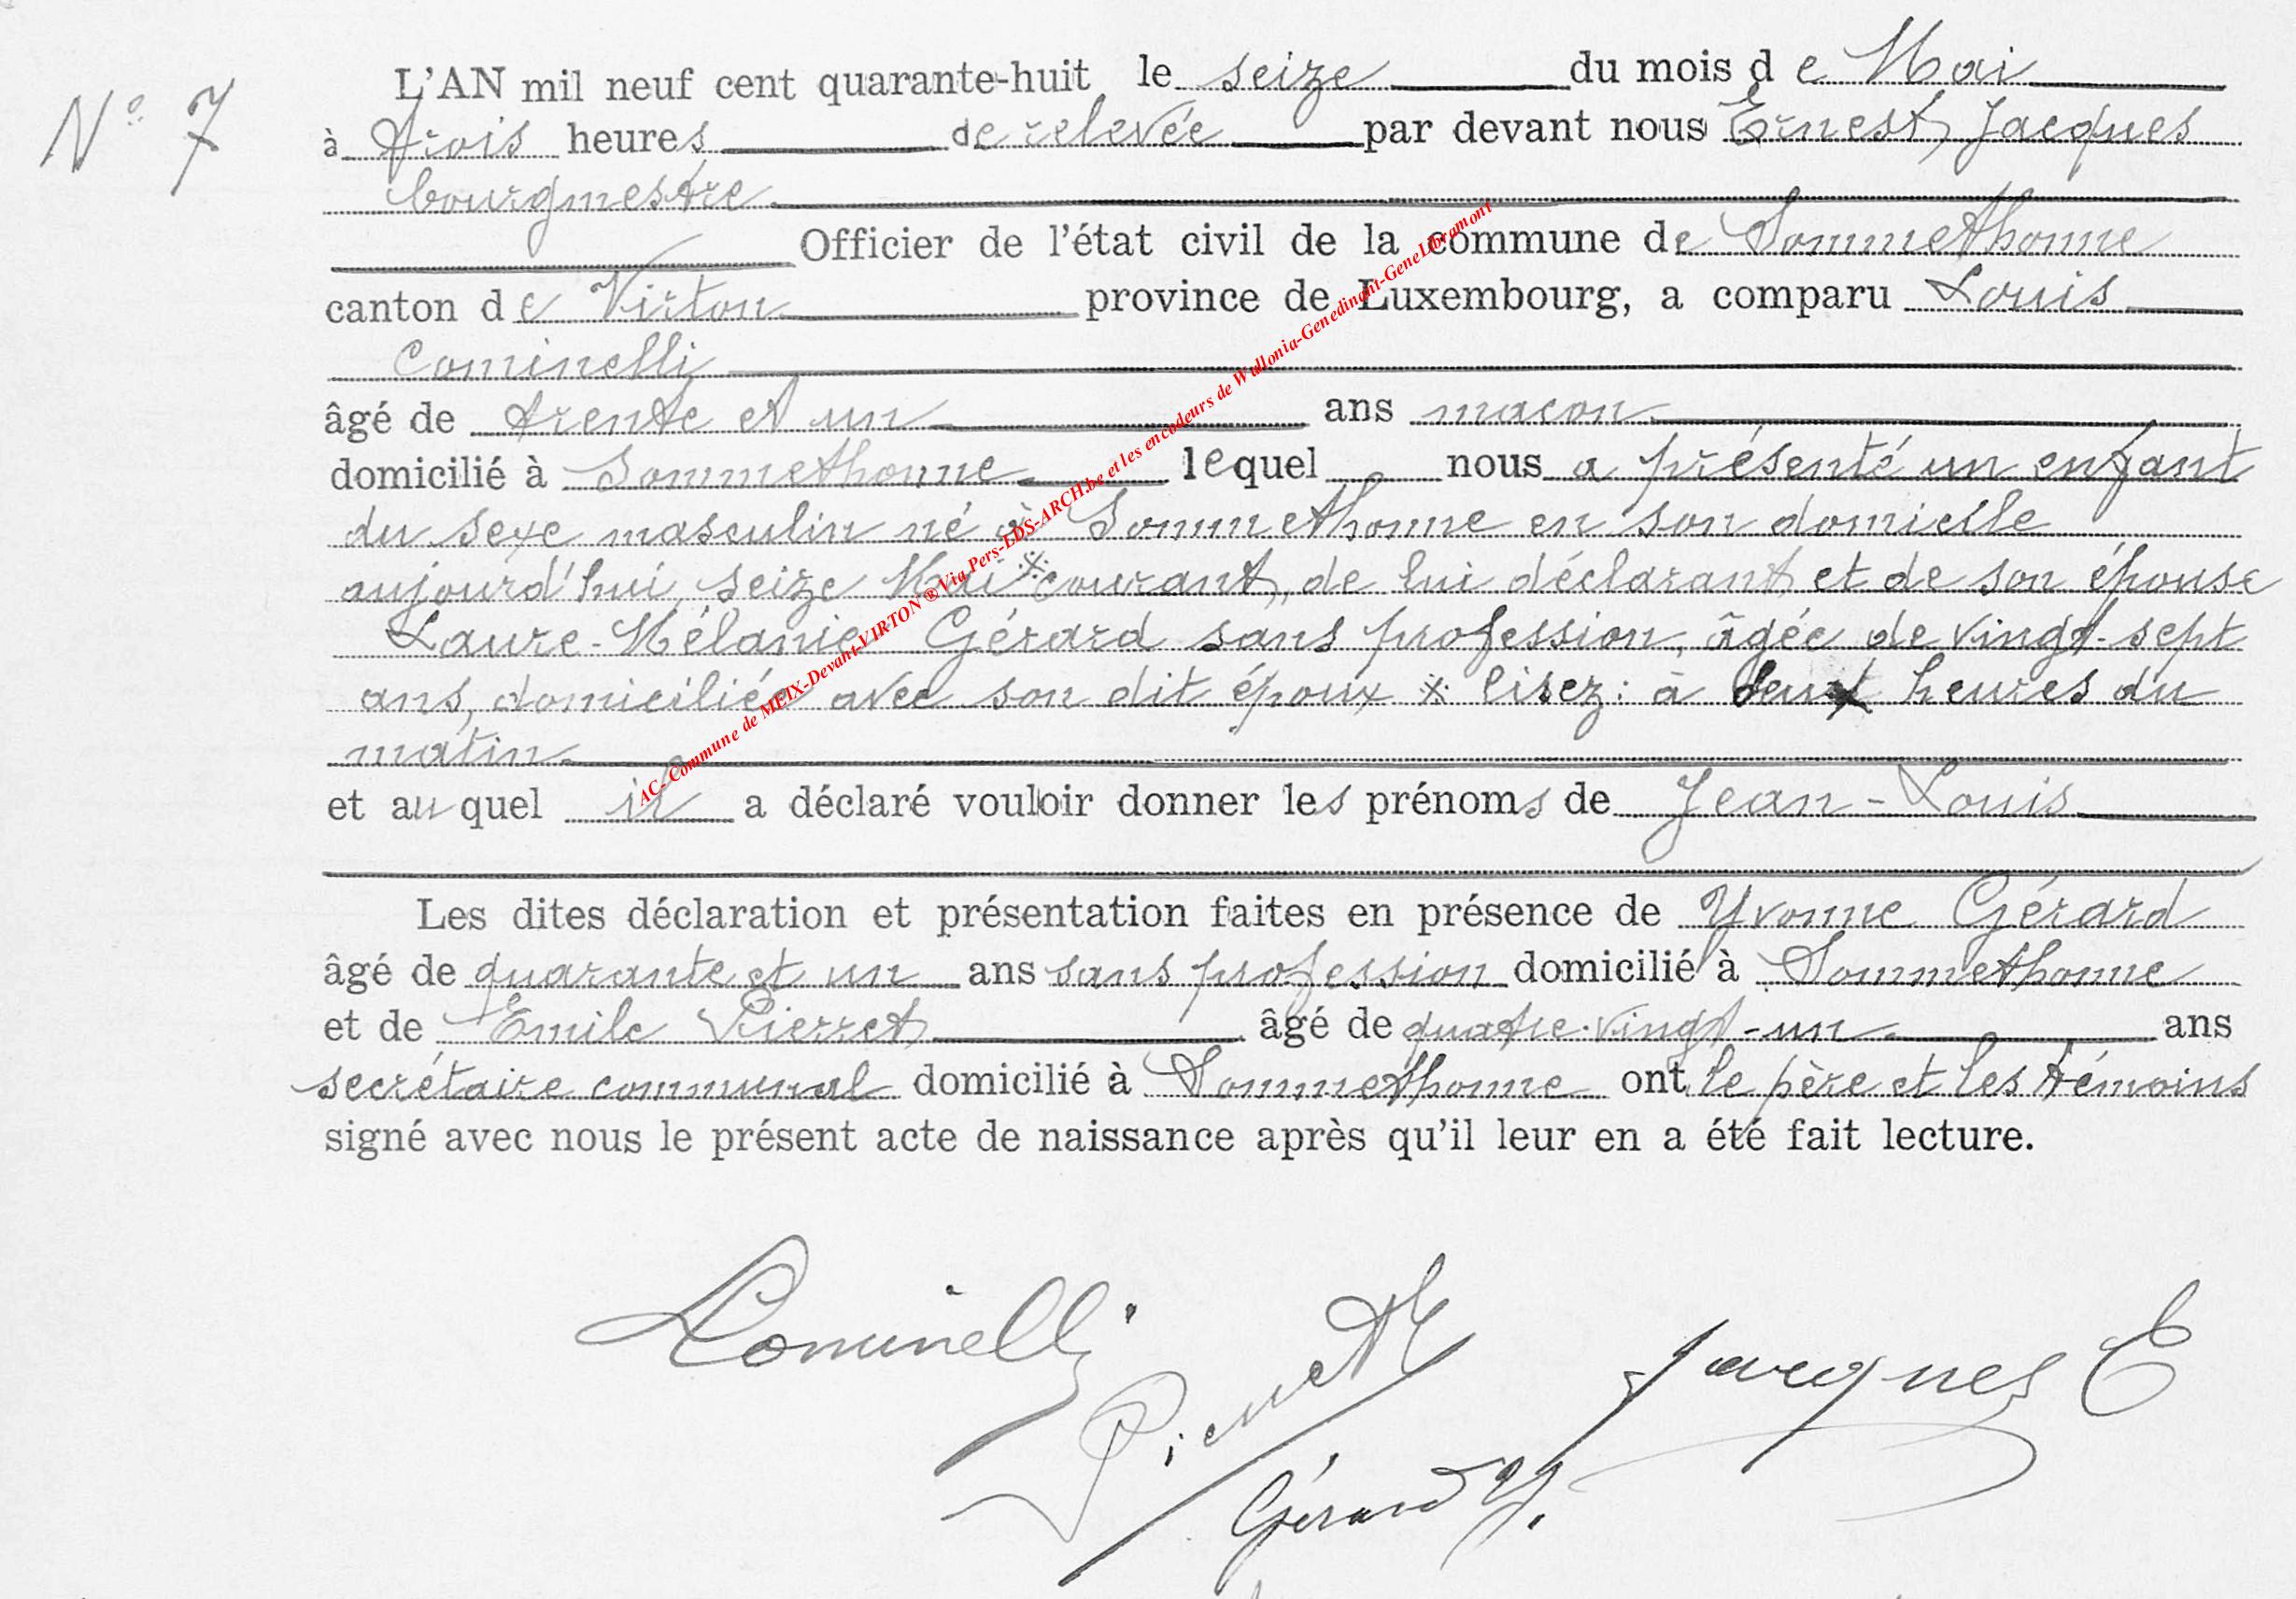 L'AN mil neuf cent quarante-huit le seize du mois de Mai
N° 7
à trois heures de relevée par devant nous Ernest Jacques
bourgmestre
Officier de l'état civil de la commune de Sommethonne
canton de Virton province de Luxembourg, a comparu Louis
Cominelli
âgé de trente et un ans macon
domicilié à Sommethonne lequel nous a présenté un enfant
du sexe masculin né à Sommethonne en son domicile
aujourd'hui, seize Mai ※ courant, de lui déclarant et de son épouse
Laure-Mélanie Gérard sans profession, âgée de vingt-sept
ans, domiciliée avec son dit époux ※ lisez: à deux heures du
matin
et au quel il a déclaré vouloir donner les prénoms de Jean-Louis
Les dites déclaration et présentation faites en présence de Yvonne Gérard
âgé de quarante et un ans sans profession domicilié à Sommethonne
et de Emile Pierret âgé de quatre-vingt-un ans
secrétaire communal domicilié à Sommethonne ont le père et les témoins
signé avec nous le présent acte de naissance après qu'il leur en a été fait lecture.
Cominelli
Pierret
Jacques E
Gérard Y.
AC- Commune de MEIX-Devant-VIRTON ® Via Pers-LDS-ARCH.be et les encodeurs de Wallonia-Genedinant-GeneLibramont